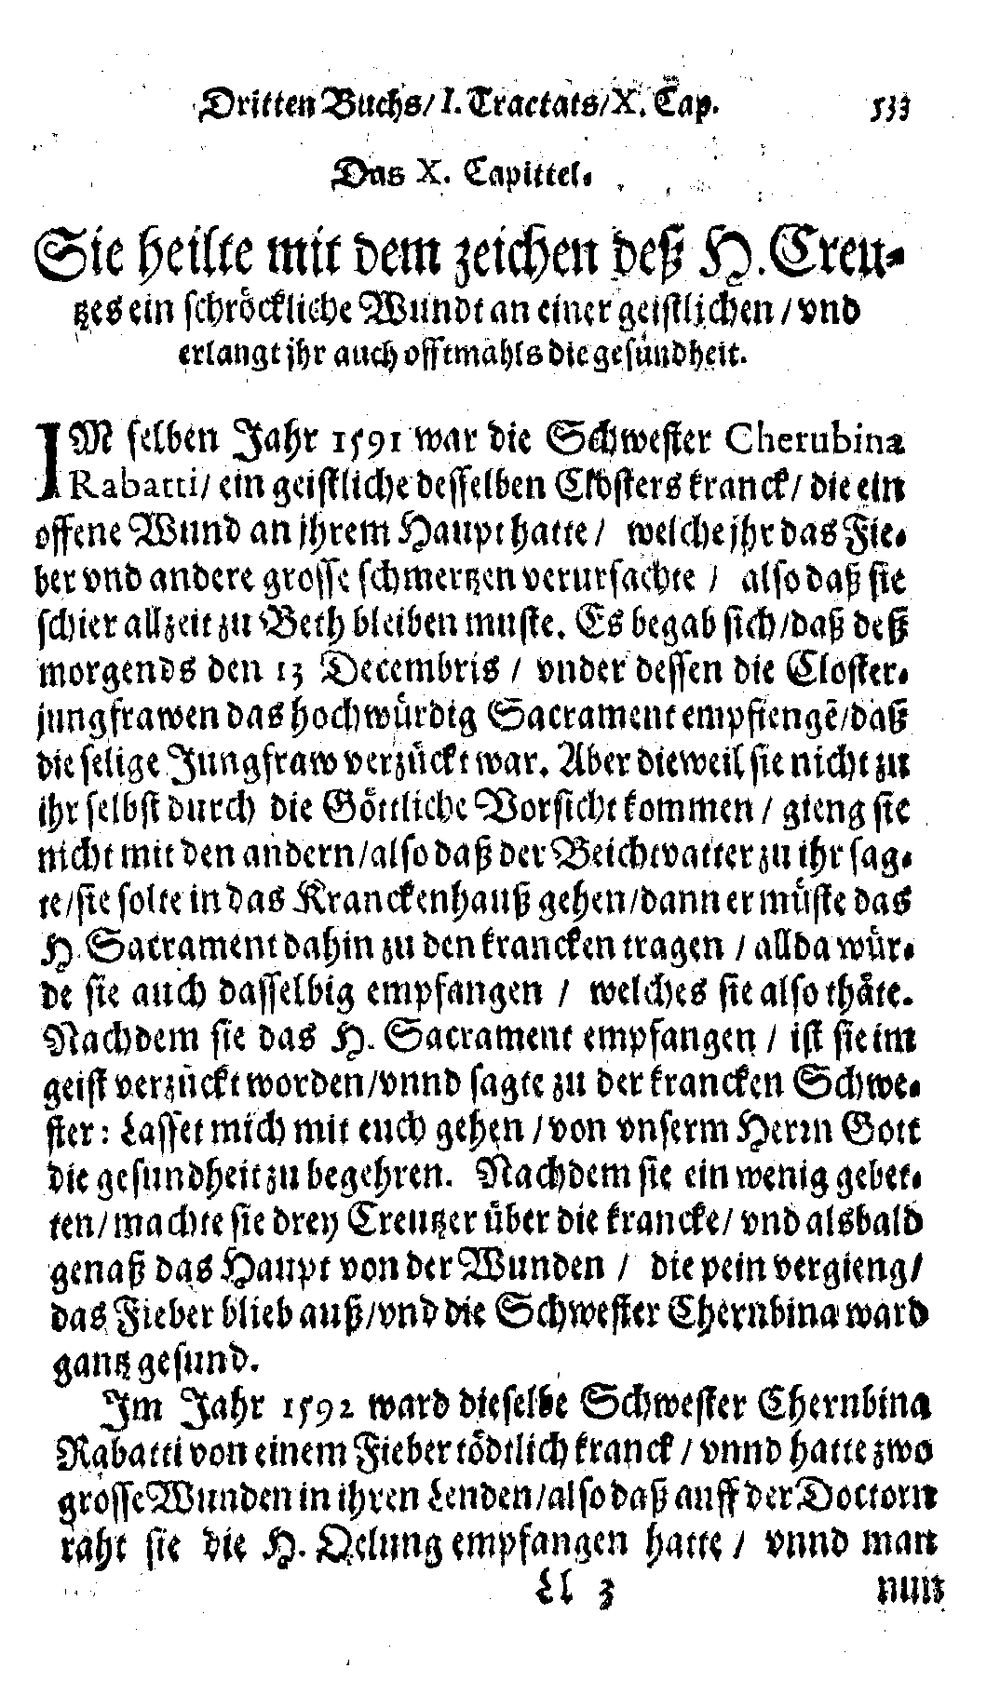 Dritten Buchs/ I. Tractats/ X. Cap. 533
Das X. Capittel.
Sie heilte mit dem zeichen deß H. Creu-
tzes ein schröckliche Wundt an einer geistlichen / vnd
erlangt jhr auch offtmahls die gesundheit.
IM selben Jahr 1591 war die Schwester Cherubina
Rabatti/ ein geistliche desselben Closters kranck/ die ein
offene Wund an jhrem Haupt hatte / welche jhr das Fie-
ber vnd andere grosse schmertzen verursachte / also daß sie
schier allzeit zu Beth bleiben muste. Es begab sich/daß deß
morgends den 13 Decembris / vnder dessen die Closter-
jungfrawen das hochwürdig Sacrament empfiengē/daß
die selige Jungfraw verzückt war. Aber dieweil sie nicht zu
ihr selbst durch die Göttliche Vorsicht kommen / gieng sie
nicht mit den andern/also daß der Beichtvatter zu ihr sag-
te/sie solte in das Kranckenhauß gehen/dann er müste das
H. Sacrament dahin zu den krancken tragen / allda wür-
de sie auch dasselbig empfangen / welches sie also thäte.
Nachdem sie das H. Sacrament empfangen / ist sie im
geist verzückt worden/vnnd sagte zu der krancken Schwe-
ster: Lasset mich mit euch gehen /von vnserm Herrn Gott
die gesundheit zu begehren. Nachdem sie ein wenig gebet-
ten/machte sie drey Creutzer über die krancke/ vnd alsbald
genaß das Haupt von der Wunden / die pein vergieng/
das Fieber blieb auß/vnd die Schwester Cherubina ward
gantz gesund.
Im Jahr 1592 ward dieselbe Schwester Chernbina
Rabatti von einem Fieber tödtlich kranck / vnnd hatte zwo
grosse Wunden in ihren Lenden/also daß auff der Doctorn
raht sie die H. Oelung empfangen hatte / vnnd man
Ll 3 nun